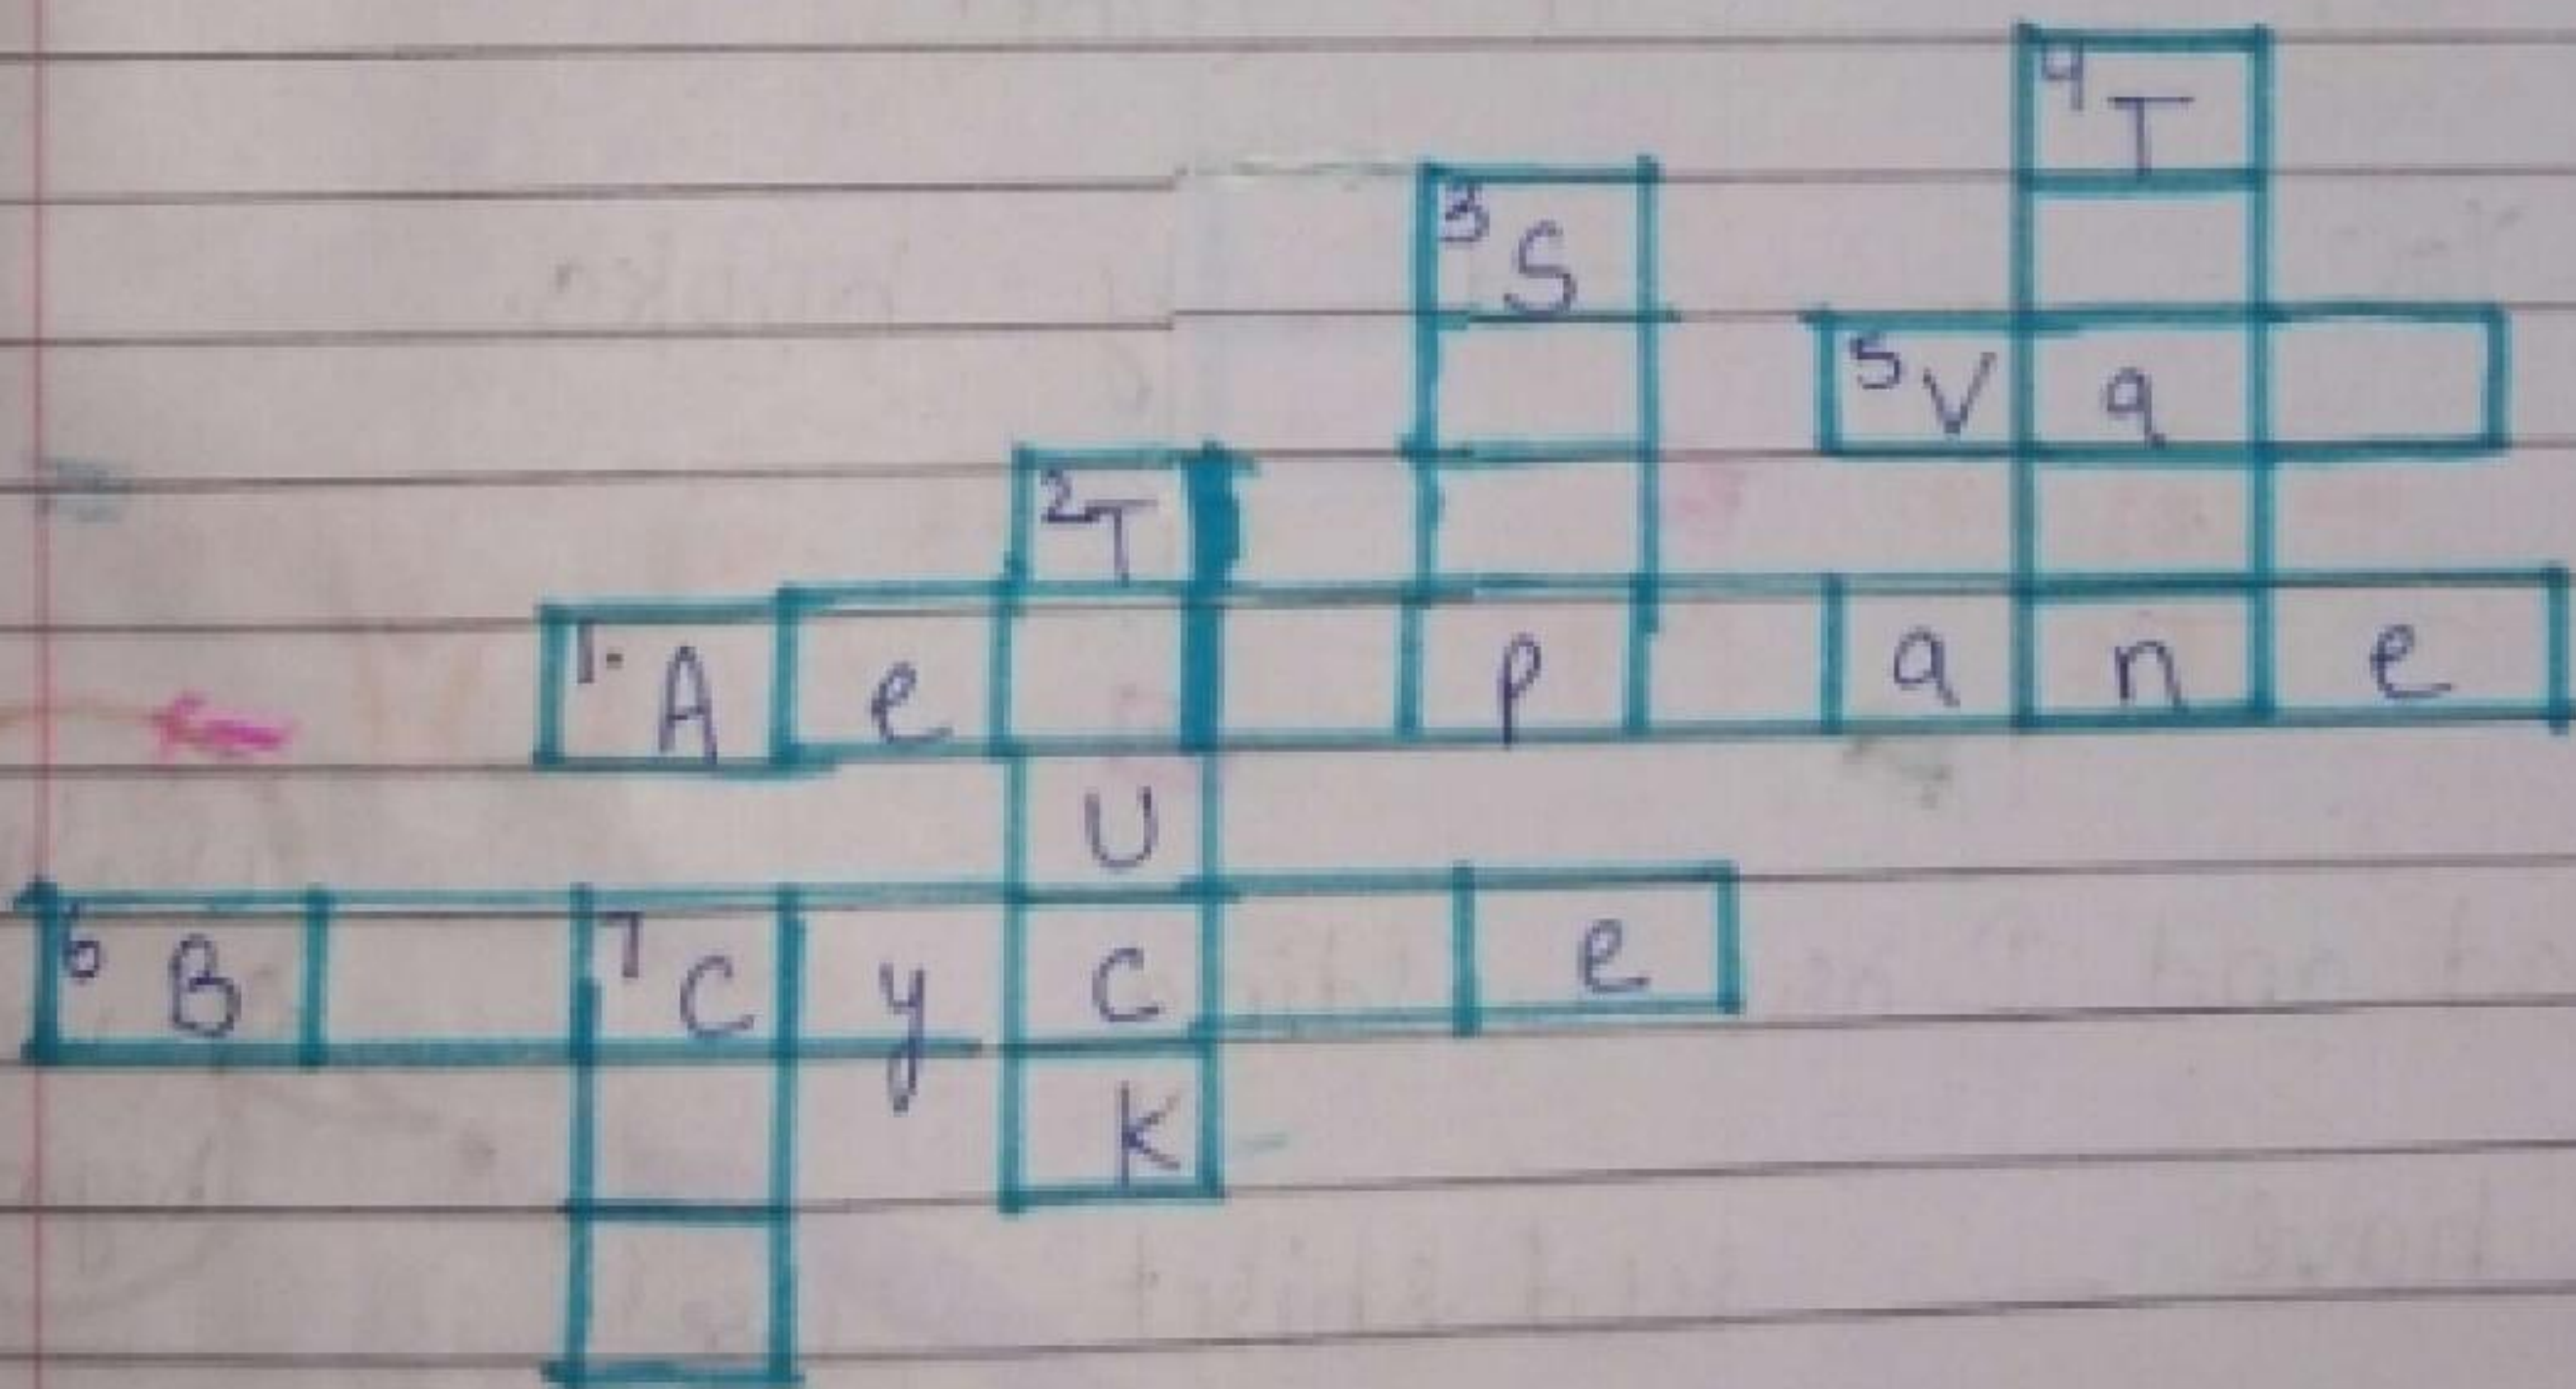 4 T
3 S
5 V a
2 T
1. A e p a n e
U
6 B 7 C y c e
k